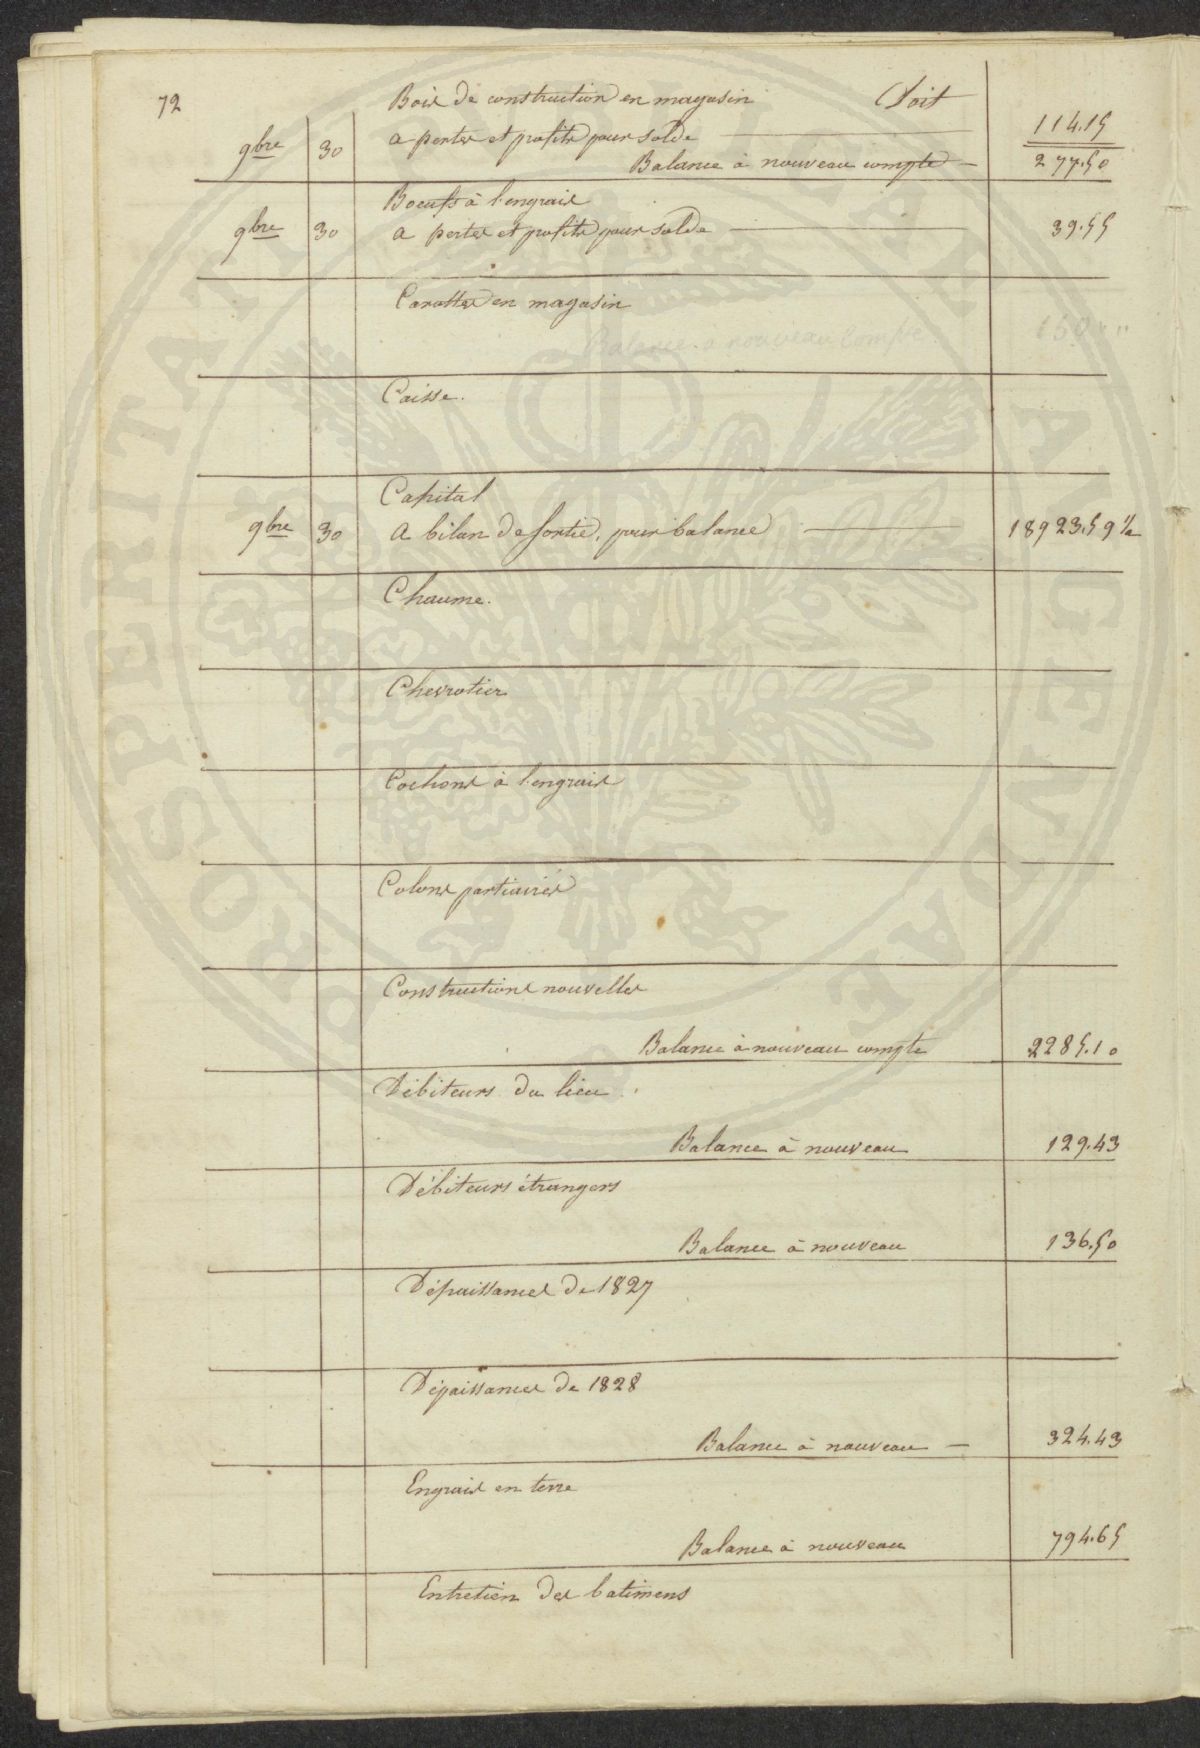 72
Bois de construction en magasin Doit
9bre 30 a pertes et profits pour solde 114.15
Balance à nouveau compte 277.50
Boeufs à l'engrais
9bre 30 a pertes et profits pour solde 39.55
Carottes en magasin
Balance à nouveau compte 150 " "
Caisse.
Capital
9bre 30 A bilan de sortie, pour balance 18923.59 1/2
Chaume.
Chevrotier
Cochons à l'engrais
Colons partiaires
Constructions nouvelles
Balance à nouveau compte 2285.10
Débiteurs du lieu
Balance à nouveau 129.43
Débiteurs étrangers
Balance à nouveau 136.50
Dépaissances de 1827
Dépaissances de 1828
Balance à nouveau 324.43
Engrais en terre
Balance à nouveau 794.65
Entretien des batimens
PROSPERITATI
PATRIAE AUGENDAE